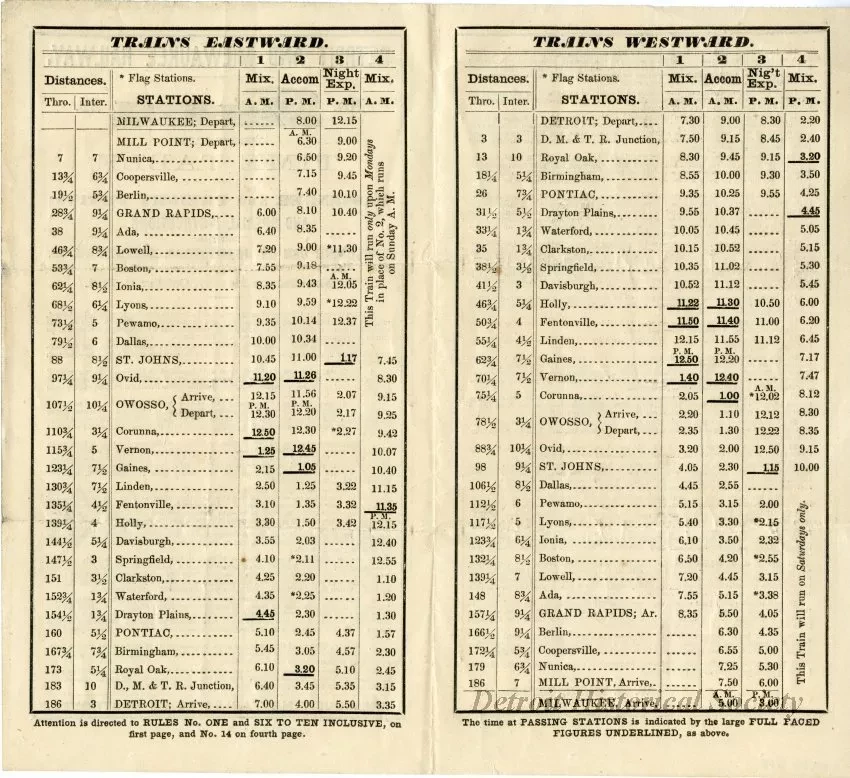 TRAINS EASTWARD.
1 2 3 4
Distances. * Flag Stations. Mix. Accom Night Exp. Mix.
Thro. Inter. STATIONS. A. M. P. M. P. M. A. M.
MILWAUKEE; Depart, ...... 8.00 12.15
A. M.
MILL POINT; Depart, ...... 6.30 9.00
7 7 Nunica, ...... 6.50 9.20
13¾ 6¾ Coopersville, 7.15 9.45
19½ 5¾ Berlin, 7.40 10.10
28¾ 9¼ GRAND RAPIDS, 6.00 8.10 10.40
38 9¼ Ada, 6.40 8.35 ......
46¾ 8¾ Lowell, 7.20 9.00 *11.30
53¾ 7 Boston, 7.55 9.18 ......
A. M.
62¼ 8½ Ionia, 8.35 9.43 12.05
68½ 6¼ Lyons, 9.10 9.59 *12.22
73½ 5 Pewamo, 9.35 10.14 12.37
79½ 6 Dallas, 10.00 10.34 ......
88 8½ ST. JOHNS, 10.45 11.00 1.17 7.45
97¼ 9¼ Ovid, 11.20 11.26 ...... 8.30
107½ 10¼ OWOSSO, { Arrive, ... 12.15 11.56 2.07 9.15
P. M. P. M.
Depart, ... 12.30 12.20 2.17 9.25
110¾ 3¼ Corunna, 12.50 12.30 *2.27 9.42
115¾ 5 Vernon, 1.25 12.45 ...... 10.07
123¼ 7½ Gaines, 2.15 1.05 ...... 10.40
130¾ 7½ Linden, 2.50 1.25 3.22 11.15
135¼ 4½ Fentonville, 3.10 1.35 3.32 11.35
P. M.
139¼ 4 Holly, 3.30 1.50 3.42 12.15
144½ 5¼ Davisburgh, 3.55 2.03 ...... 12.40
147½ 3 Springfield, 4.10 *2.11 ...... 12.55
151 3½ Clarkston, 4.25 2.20 ...... 1.10
152¾ 1¾ Waterford, 4.35 *2.25 ...... 1.20
154½ 1¾ Drayton Plains, 4.45 2.30 ...... 1.30
160 5½ PONTIAC, 5.10 2.45 4.37 1.57
167¾ 7¾ Birmingham, 5.45 3.05 4.57 2.30
173 5¼ Royal Oak, 6.10 3.20 5.10 2.45
183 10 D., M. & T. R. Junction, 6.40 3.45 5.35 3.15
186 3 DETROIT; Arrive, 7.00 4.00 5.50 3.35
This Train will run only upon Mondays
in place of No. 2, which runs
on Sunday A. M.
Attention is directed to RULES No. ONE and SIX TO TEN INCLUSIVE, on
first page, and No. 14 on fourth page.
TRAINS WESTWARD.
1 2 3 4
Distances. * Flag Stations. Mix. Accom Nig't Exp. Mix.
Thro. Inter. STATIONS. A. M. A. M. P. M. P. M.
DETROIT; Depart, 7.30 9.00 8.30 2.20
3 3 D. M. & T. R. Junction, 7.50 9.15 8.45 2.40
13 10 Royal Oak, 8.30 9.45 9.15 3.20
18¼ 5¼ Birmingham, 8.55 10.00 9.30 3.50
26 7¾ PONTIAC, 9.35 10.25 9.55 4.25
31½ 5½ Drayton Plains, 9.55 10.37 ...... 4.45
33¼ 1¾ Waterford, 10.05 10.45 ...... 5.05
35 1¾ Clarkston, 10.15 10.52 ...... 5.15
38½ 3½ Springfield, 10.35 11.02 ...... 5.30
41½ 3 Davisburgh, 10.52 11.12 ...... 5.45
46¾ 5¼ Holly, 11.22 11.30 10.50 6.00
50¾ 4 Fentonville, 11.50 11.40 11.00 6.20
55¼ 4½ Linden, 12.15 11.55 11.12 6.45
P. M. P. M.
62¾ 7½ Gaines, 12.50 12.20 ...... 7.17
70¼ 7½ Vernon, 1.40 12.40 ...... 7.47
A. M.
75¼ 5 Corunna, 2.05 1.00 *12.02 8.12
78½ 3¼ OWOSSO, { Arrive, ... 2.20 1.10 12.12 8.30
Depart, ... 2.35 1.30 12.22 8.35
88¾ 10¼ Ovid, 3.20 2.00 12.50 9.15
98 9¼ ST. JOHNS, 4.05 2.30 1.15 10.00
106½ 8½ Dallas, 4.45 2.55 ......
112½ 6 Pewamo, 5.15 3.15 2.00
117½ 5 Lyons, 5.40 3.30 *2.15
123¾ 6¼ Ionia, 6.10 3.50 2.32
132¼ 8½ Boston, 6.50 4.20 *2.55
139¼ 7 Lowell, 7.20 4.45 3.15
148 8¾ Ada, 7.55 5.15 *3.38
157¼ 9¼ GRAND RAPIDS; Ar. 8.35 5.50 4.05
166½ 9¼ Berlin, ...... 6.30 4.35
172¼ 5¾ Coopersville, ...... 6.55 5.00
179 6¾ Nunica, ...... 7.25 5.30
186 7 MILL POINT, Arrive, ...... 7.50 6.00
A. M. P. M.
MILWAUKEE, Arrive, ...... 5.00 3.00
This Train will run on Saturdays only.
Detroit Historical Society
The time at PASSING STATIONS is indicated by the large FULL FACED
FIGURES UNDERLINED, as above.